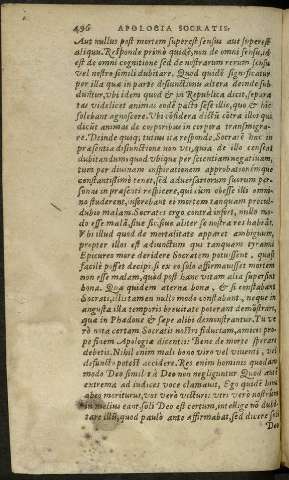 496 APOLOGIA SOCRATIS.
Aut nullus post mortem superest sensus aut superest
aliquis. Respondeo primò quidē, non de omni sensu, id
est de omni cognitione sed de nostrarum rerum sensu
vel nostro simili dubitare. Quod quidē significatur
per illa quæ in partis disiunctioni altera deinde sub-
duntur, vbi idem quod & in Republica dicit, separa-
tas videlicet animas eodē pacto sese illic, quo & hic
solebant agnoscere. Vbi cōsidera dictū cōtra illos qui
dicūt animas de corporibus in corpora transmigra-
re. Deinde quoq; tutum ita respondeo, Socratē hac in
præsentia disiunctione non vti, quia de illo censeat
dubitandum quod vbique per scientiam negatiuam,
tum per diuinam inspirationem approbationémque
constantissimè tenet, sed aduersariorum suorum per-
sonā in præsenti respicere, qui cum obesse illi omni-
no studerent, inferebant ei mortem tanquam procul-
dubio malam. Socrates ergo contrà infert, nullo mo-
do esse malā, siue sic, siue aliter se nostra res habeāt.
Vbi illud quod de mortalitate apparet ambiguum,
propter illos est adiunctum qui tanquam tyranni
Epicureo more deridere Socratem potuissent, quasi
facilè posset decipi, si ex eo solo affirmasset mortem
non esse malam, quòd post hanc vitam alia superfint
bona. Quæ quidem æterna bona, & si constabant
Socrati, illis tamen nullo modo constabant, neque in
angusta illa temporis breuitate poterant demōstrari,
quæ in Phædone & sæpe alibi demonstrantur. Tu ve
rò nota certam Socratis nostri fiduciam, amicos pro-
pe finem Apologiæ dicentis: Bene de morte sperare
debetis. Nihil enim mali bono viro vel viuenti, vel
defuncto potest accidere. Res enim hominis quodam
modo Deo similis à Deo non negliguntur. Quod autē
extrema ad iudices voce clamauit, Ego quidē hinc
abeo moriturus, vos verò victuri: vtri verò nostrūm
in melius eant, soli Deo est certum, intellige nō dubi-
tare illū, quod paulò antè affirmabat, sed dicere soli
Deo